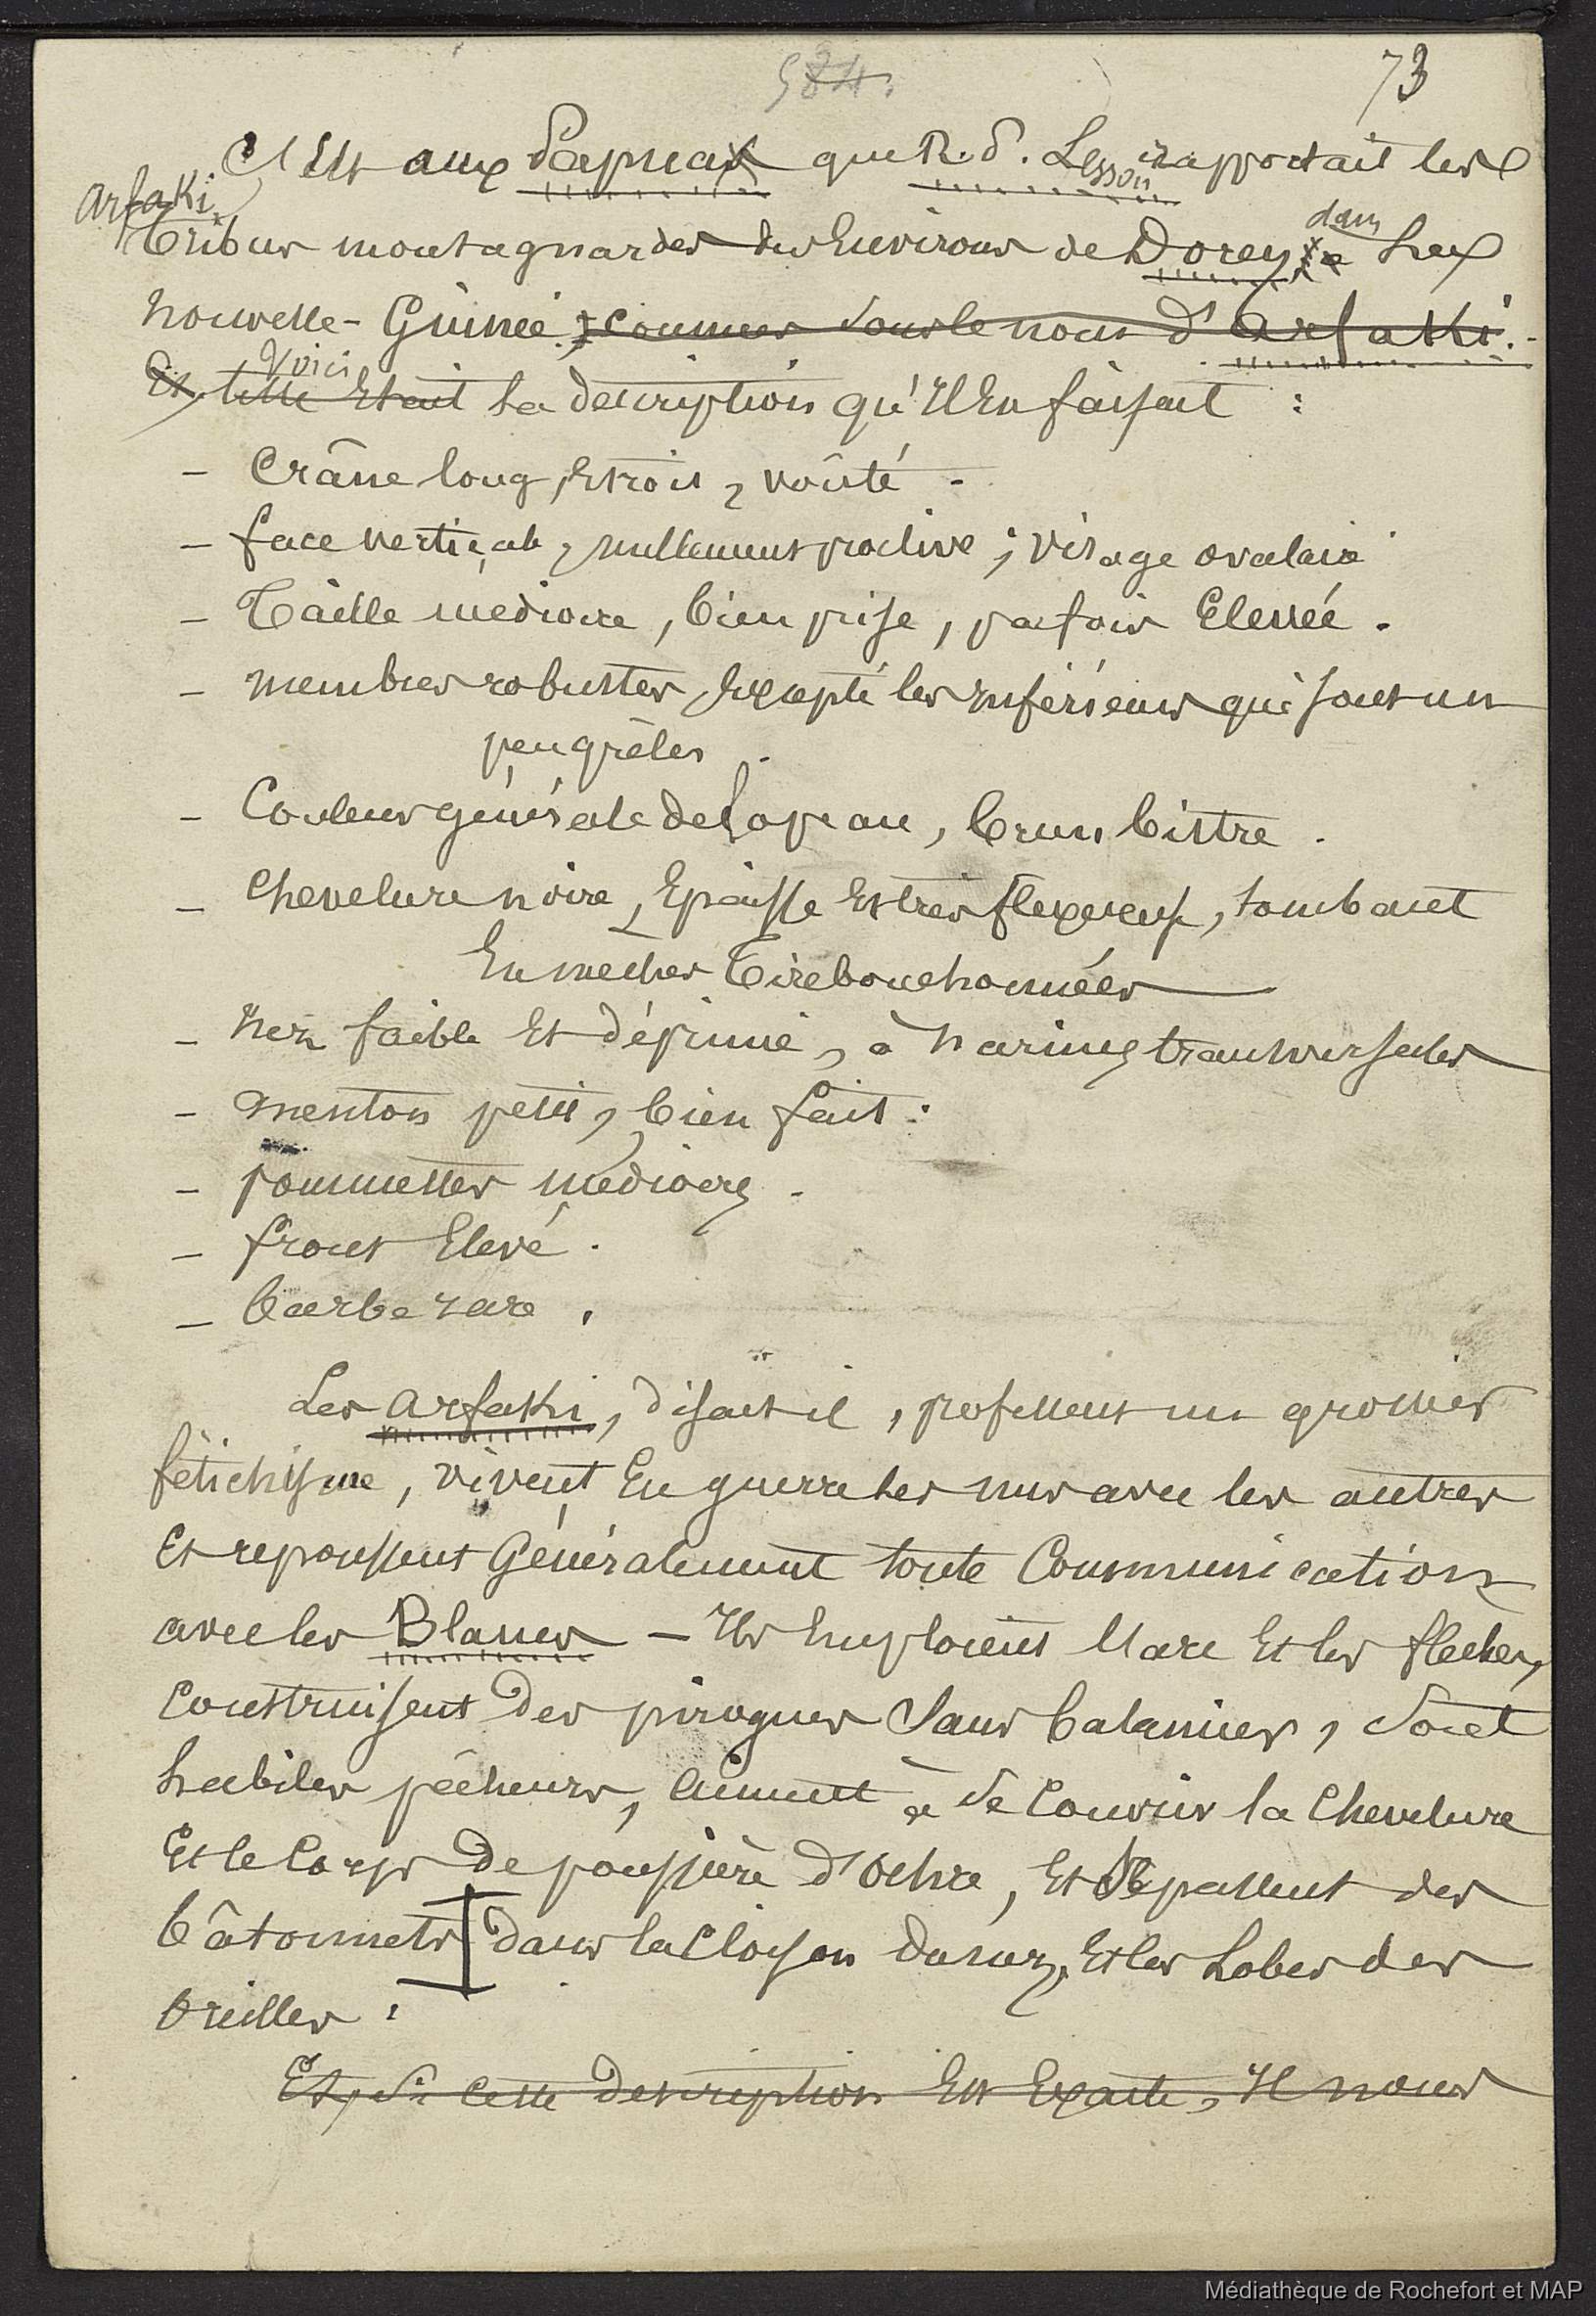 584.
73
C'est aux Papuas que R. P. Lesson rapportait les
Arfaki
tribus montagnardes des Environs de Dorey, dans la
Nouvelle-Guinée, connues sous le nom d'Arfaki.
Voici
Et telle Etait la description qu'il En faisait :
- Crâne long, Etroit, voûté.
- face verticale, nullement proclive ; visage ovalaire
- Taille médiocre, bien prise, parfois Elevée.
- membres robustes, Excepté les inférieurs qui sont un
peu grêles.
- Couleur générale de la peau, brun bistre.
- Chevelure noire, Epaisse Et très flexueuse, tombant
En mèches Tirebouchonnées
- Nez faible Et déprimé, à narines transversales
- menton petit, bien fait.
- pommettes médiocres.
- front Elevé.
- barbe rare.
Les Arfaki, disait-il, professent un grossier
fétichisme, vivent En guerre les uns avec les autres
Et repoussent Généralement toute Communication
avec les Blancs - Ils Emploient l'arc Et les flèches,
Construisent des pirogues Sans balanciers, Sont
habiles pêcheurs, aiment à Se Couvrir la Chevelure
Et le Corps de poussière d'Ochre, Et Se passent des
bâtonnets dans la Cloison du nez, Et les Lobes des
oreilles.
Et, Si Cette description Est Exacte, Il nous
Médiathèque de Rochefort et MAP